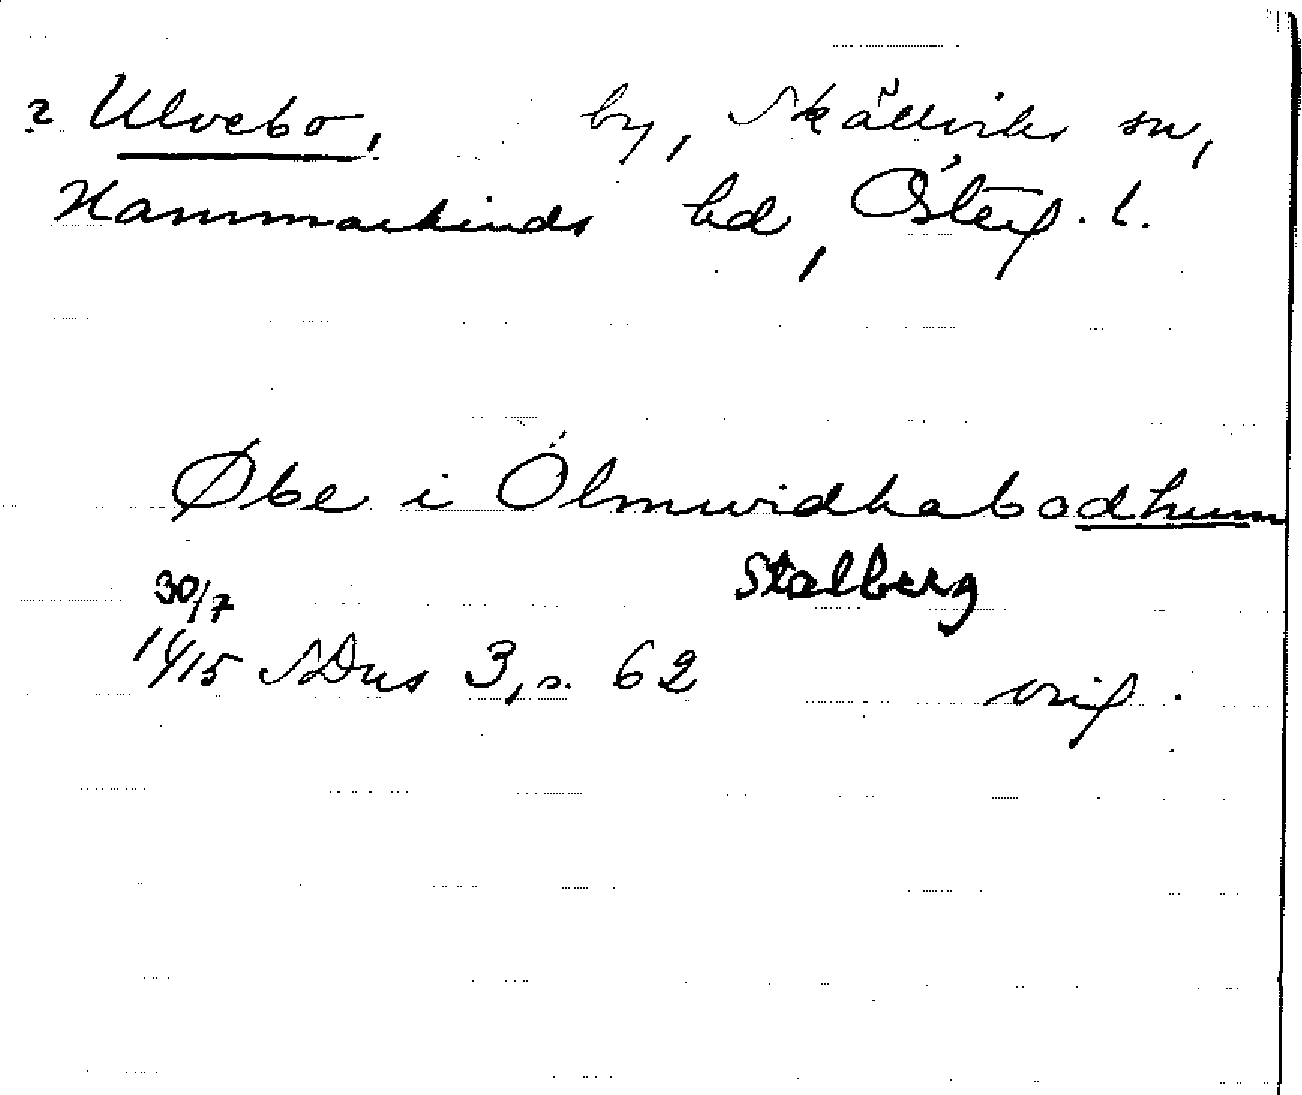 ? Ulvebo, by, Skällviks sn,
Hammarkinds hd, Österg. l.
Øbe i Ølmwidhabodhum
Stalberg
30/7
1415 SDns 3, s. 62 orig.